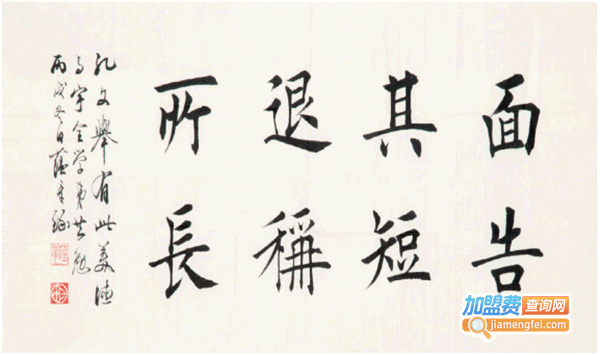 面告
其短
退稱
所長
孔文舉有此美德
与宇全学弟共勉
丙戌冬日
加盟费查询网
jiamengfei.com